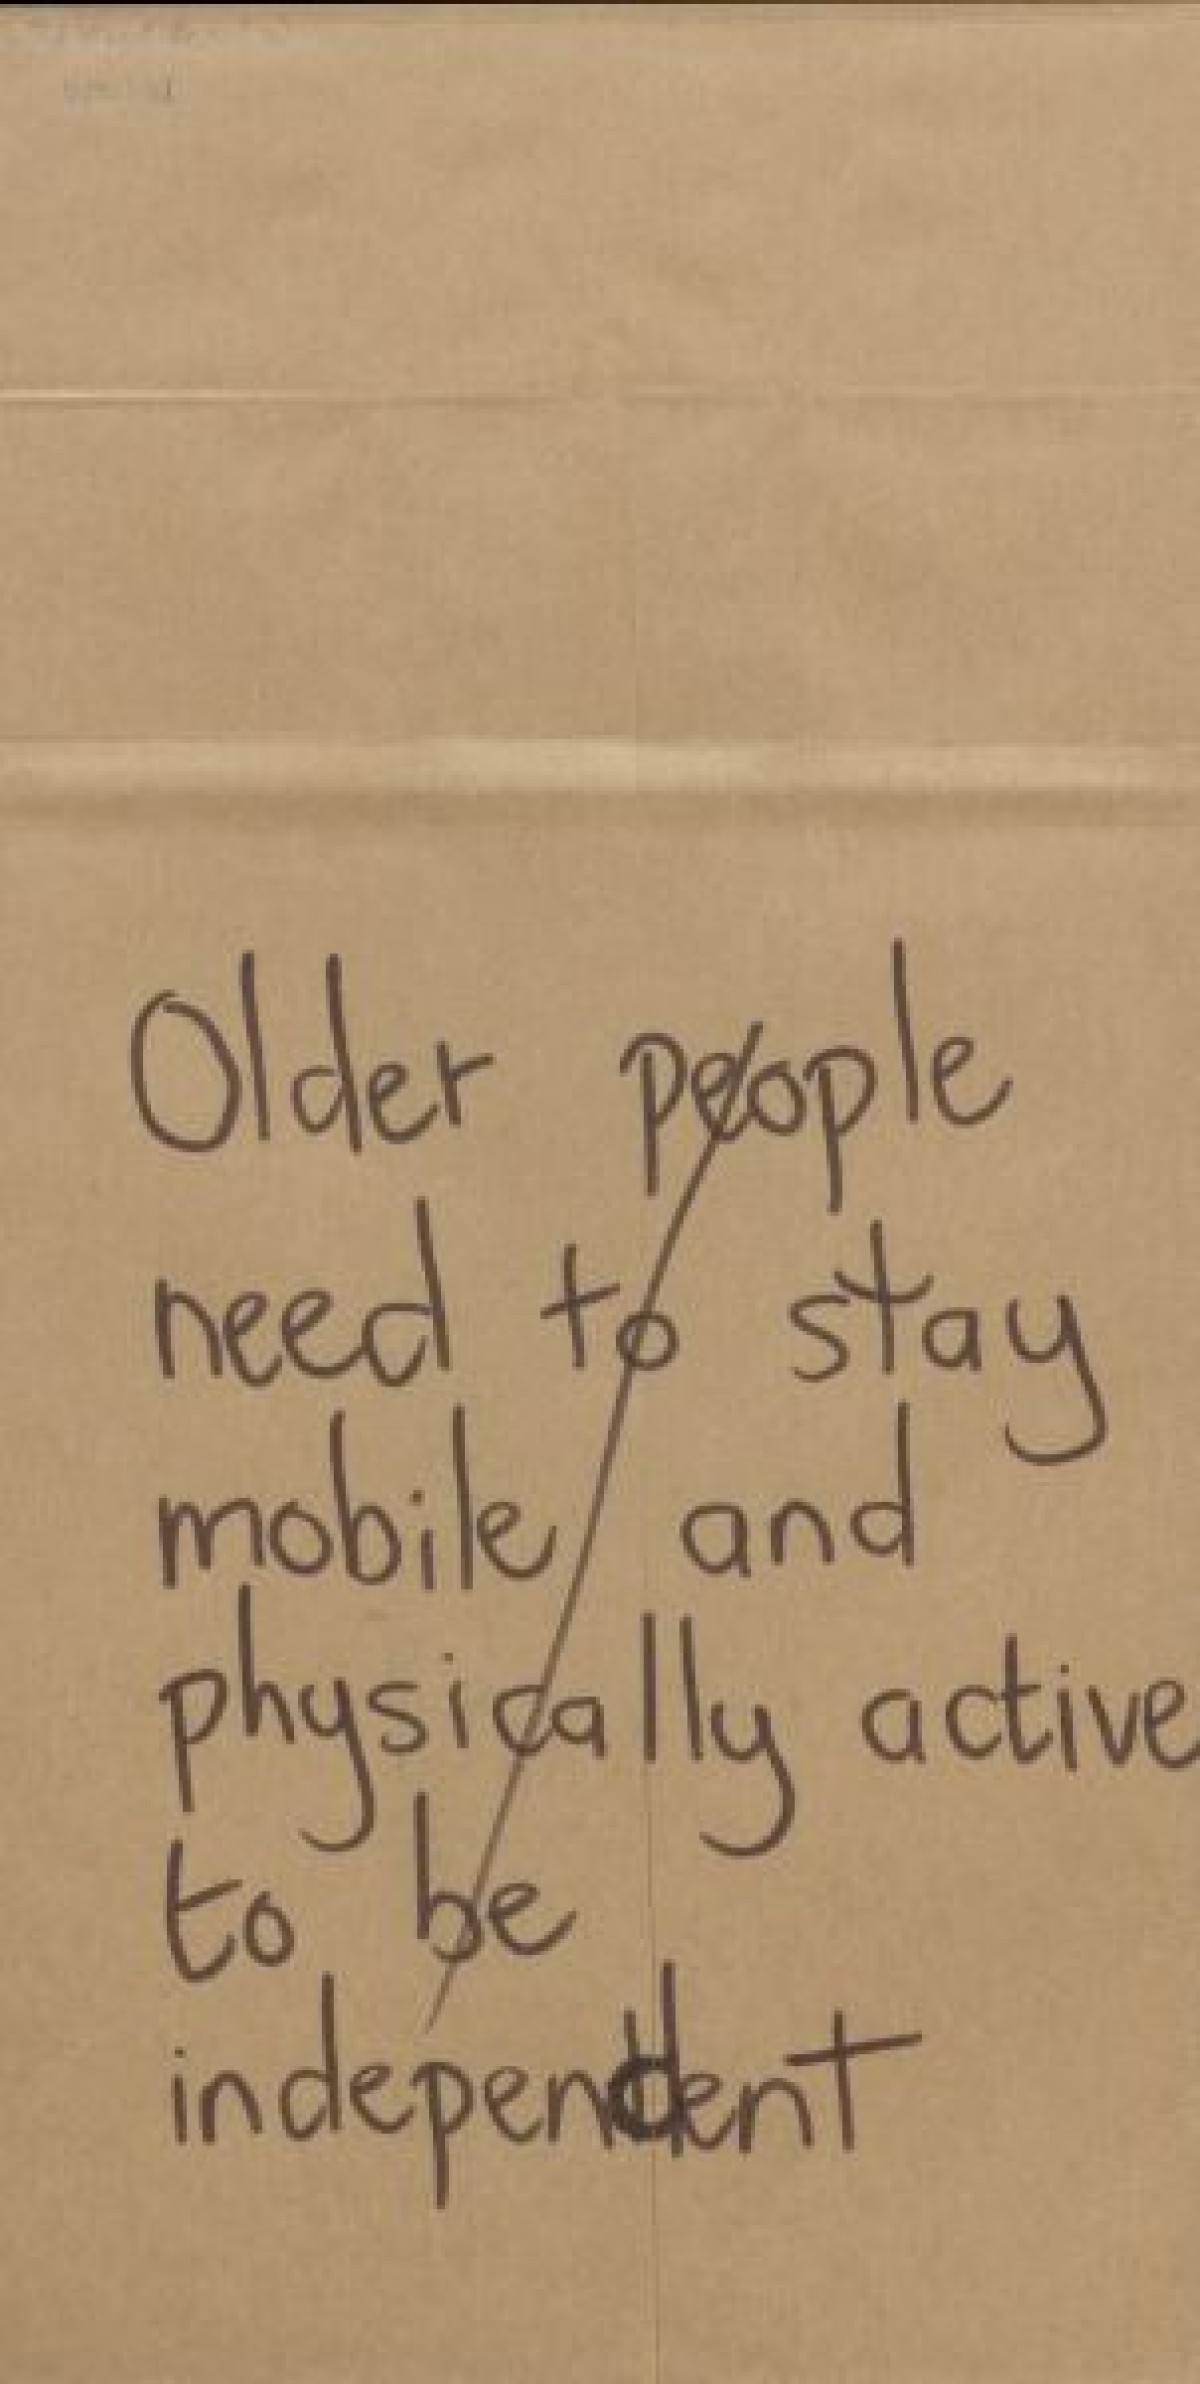 Older people
need to stay
mobile and
physically active
to be
independent